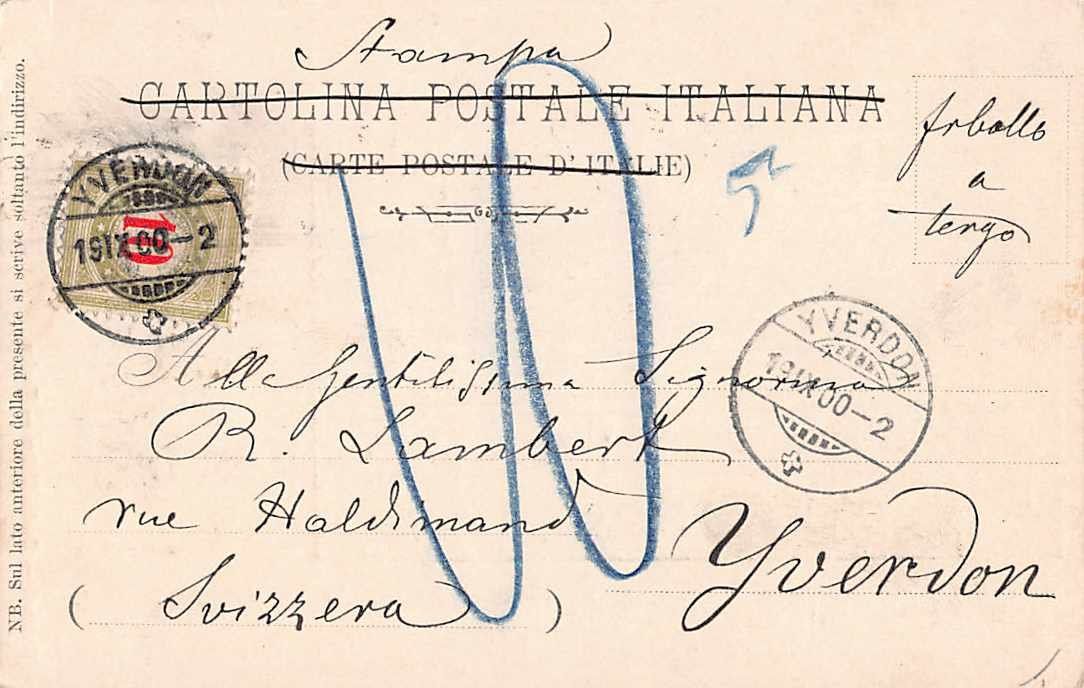 Stampa
CARTOLINA POSTALE ITALIANA
(CARTE POSTALE D'ITALIE)
frbollo
a
tergo
YVERDON
19 IX 00-2
10
YVERDON
19 IX 00-2
10
Alla Gentilissima Signorina
R. Lambert
rue Haldimand
Yverdon
(Svizzera)
NB. Sul lato anteriore della presente si scrive soltanto l'indirizzo.